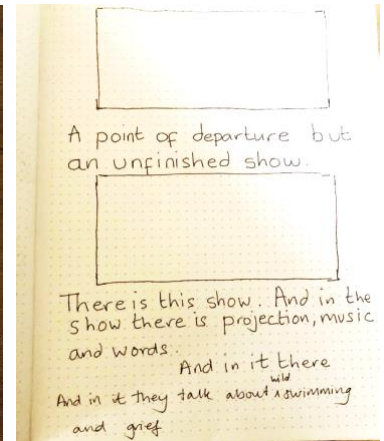 A point of departure but
an unfinished show.
There is this show. And in the
show there is projection, music
and words.
And in it there
And in it they talk about wild swimming
and grief